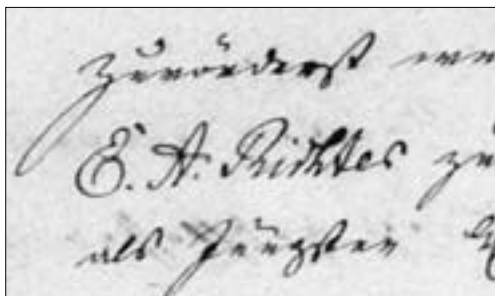 Zuvörderst
E. A. Richter zu
als Jüngster